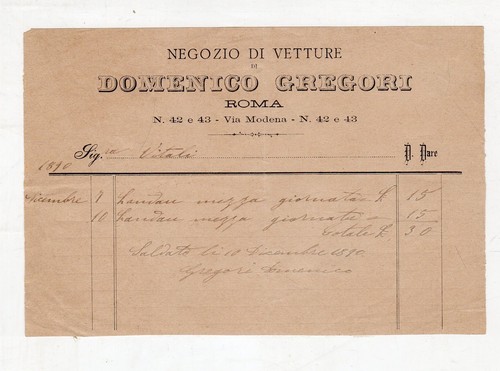 NEGOZIO DI VETTURE
DI
DOMENICO GREGORI
ROMA
N. 42 e 43 - Via Modena - N. 42 e 43
Sig.ra Vitali D. Dare
1890
Dicembre 9 Landau mezza giornata £ 15
10 Landau mezza giornata = 15
totale £ 30
Saldato li 10 Dicembre 1890
Gregori Domenico